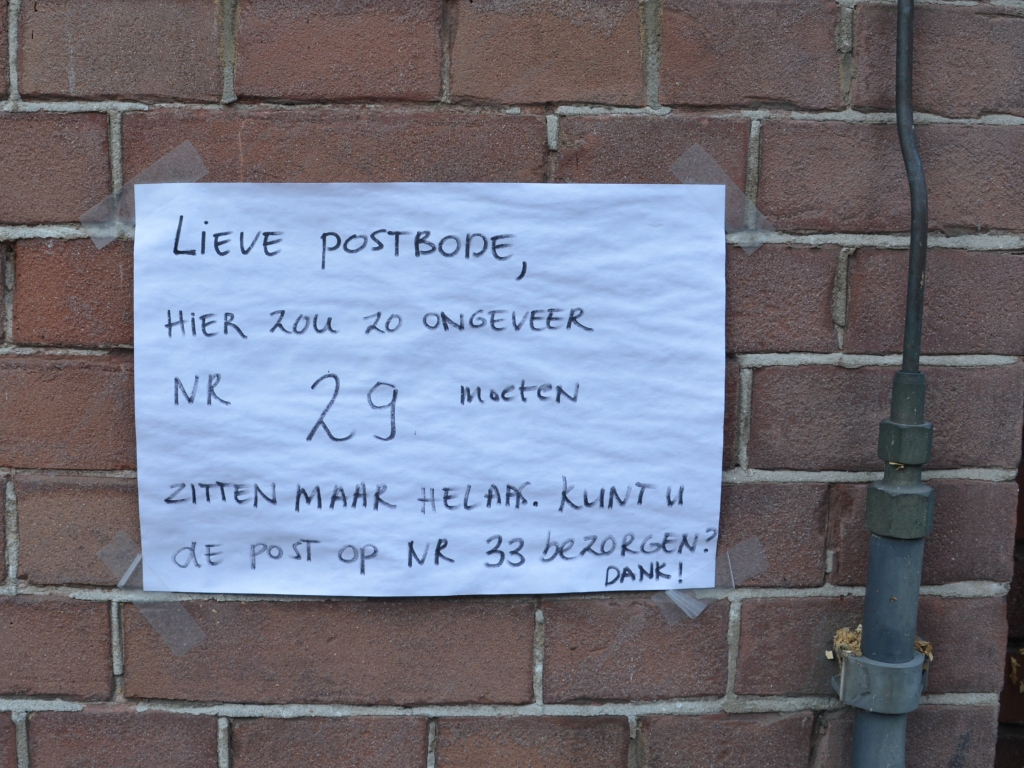 LIEVE POSTBODE,
HIER ZOU ZO ONGEVEER
NR 29 moeten
ZITTEN MAAR HELAAS. KUNT U
de POST OP NR 33 beZORGEN?
DANK!